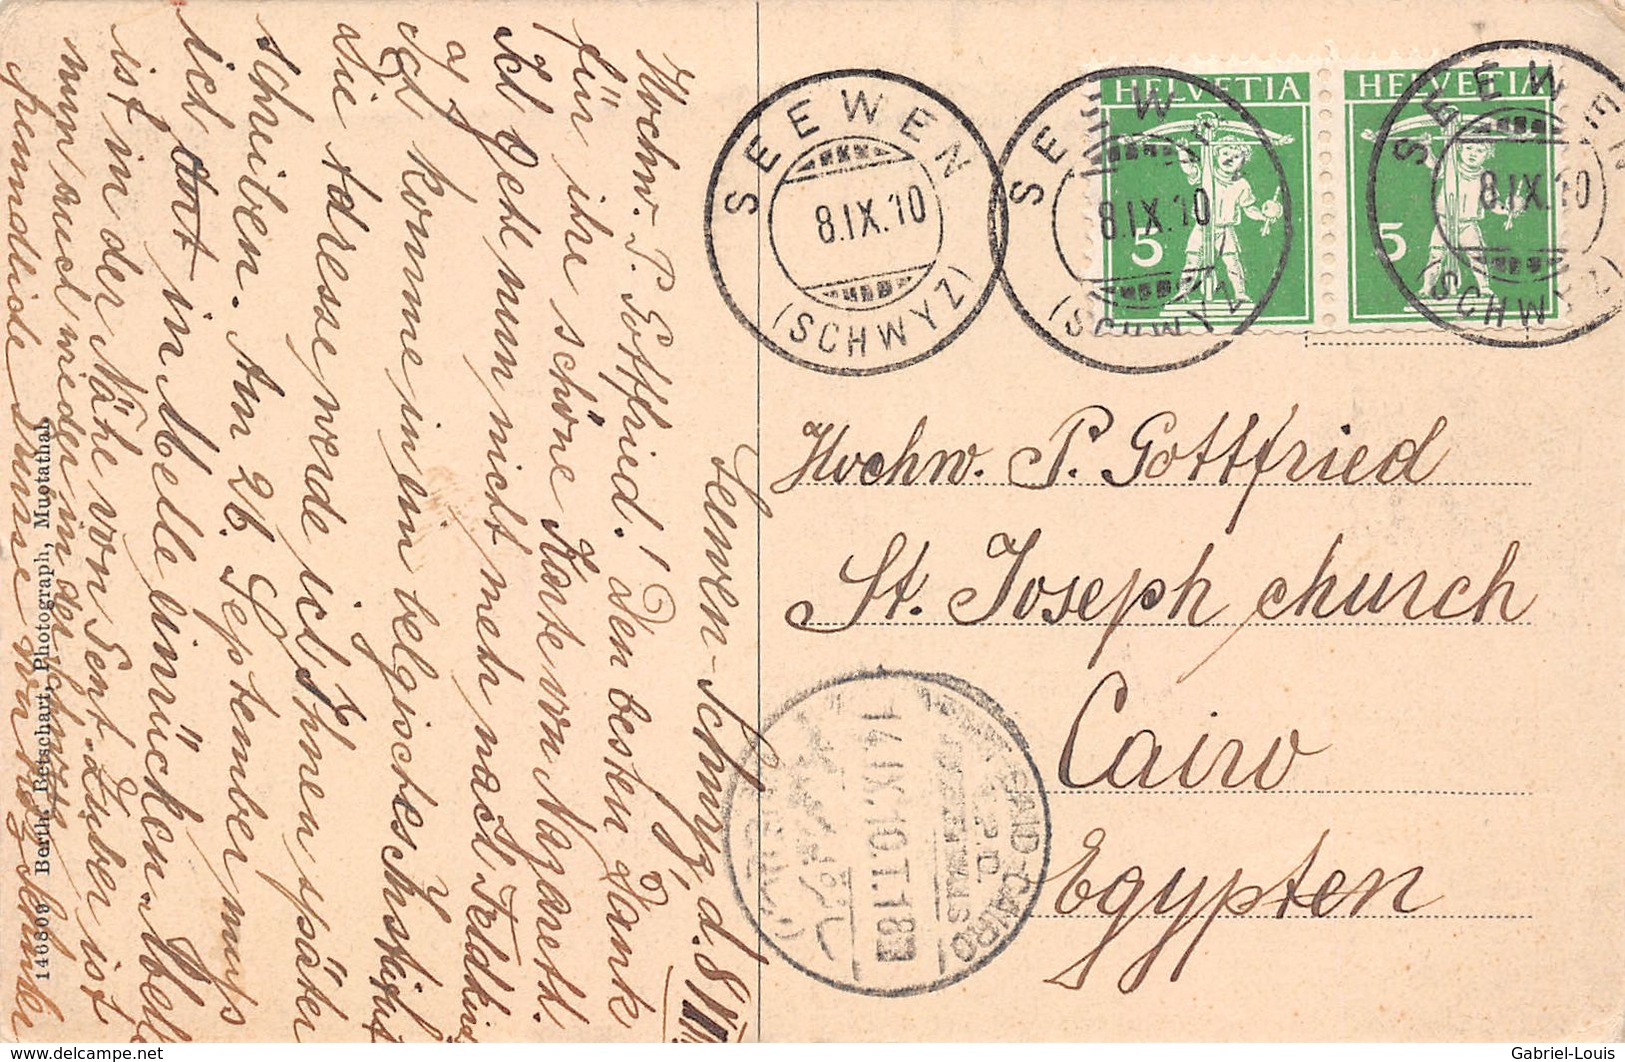 Seewen-Schwyz, d. 8
Hochw. P. Gottfried! Den besten Dank
für ihre schöne Karte von Nazarett.
Ich geh nun nicht mehr nach Feldkirch
Ich komme in ein belgisches Institut
Die Adresse werde ich Ihnen später
schreiben. Am 26. September muss
ich in Melle einrücken. Melle
ist in der Nähe von Gent. Zuber ist
nun auch wieder in der
Freundliche Grüsse von
140809 Berth. Betschart, Photograph, Muotathal.
SEEWEN
8.IX.10
(SCHWYZ)
SEEWEN
8.IX.10
(SCHWYZ)
SEEWEN
8.IX.10
(SCHWYZ)
HELVETIA
5
HELVETIA
5
Hochw. P. Gottfried
St. Joseph church
Cairo
Egypten
SAID-CAIRO
T.P.O.
14.IX.10.T.18
delcampe.net
Gabriel-Louis